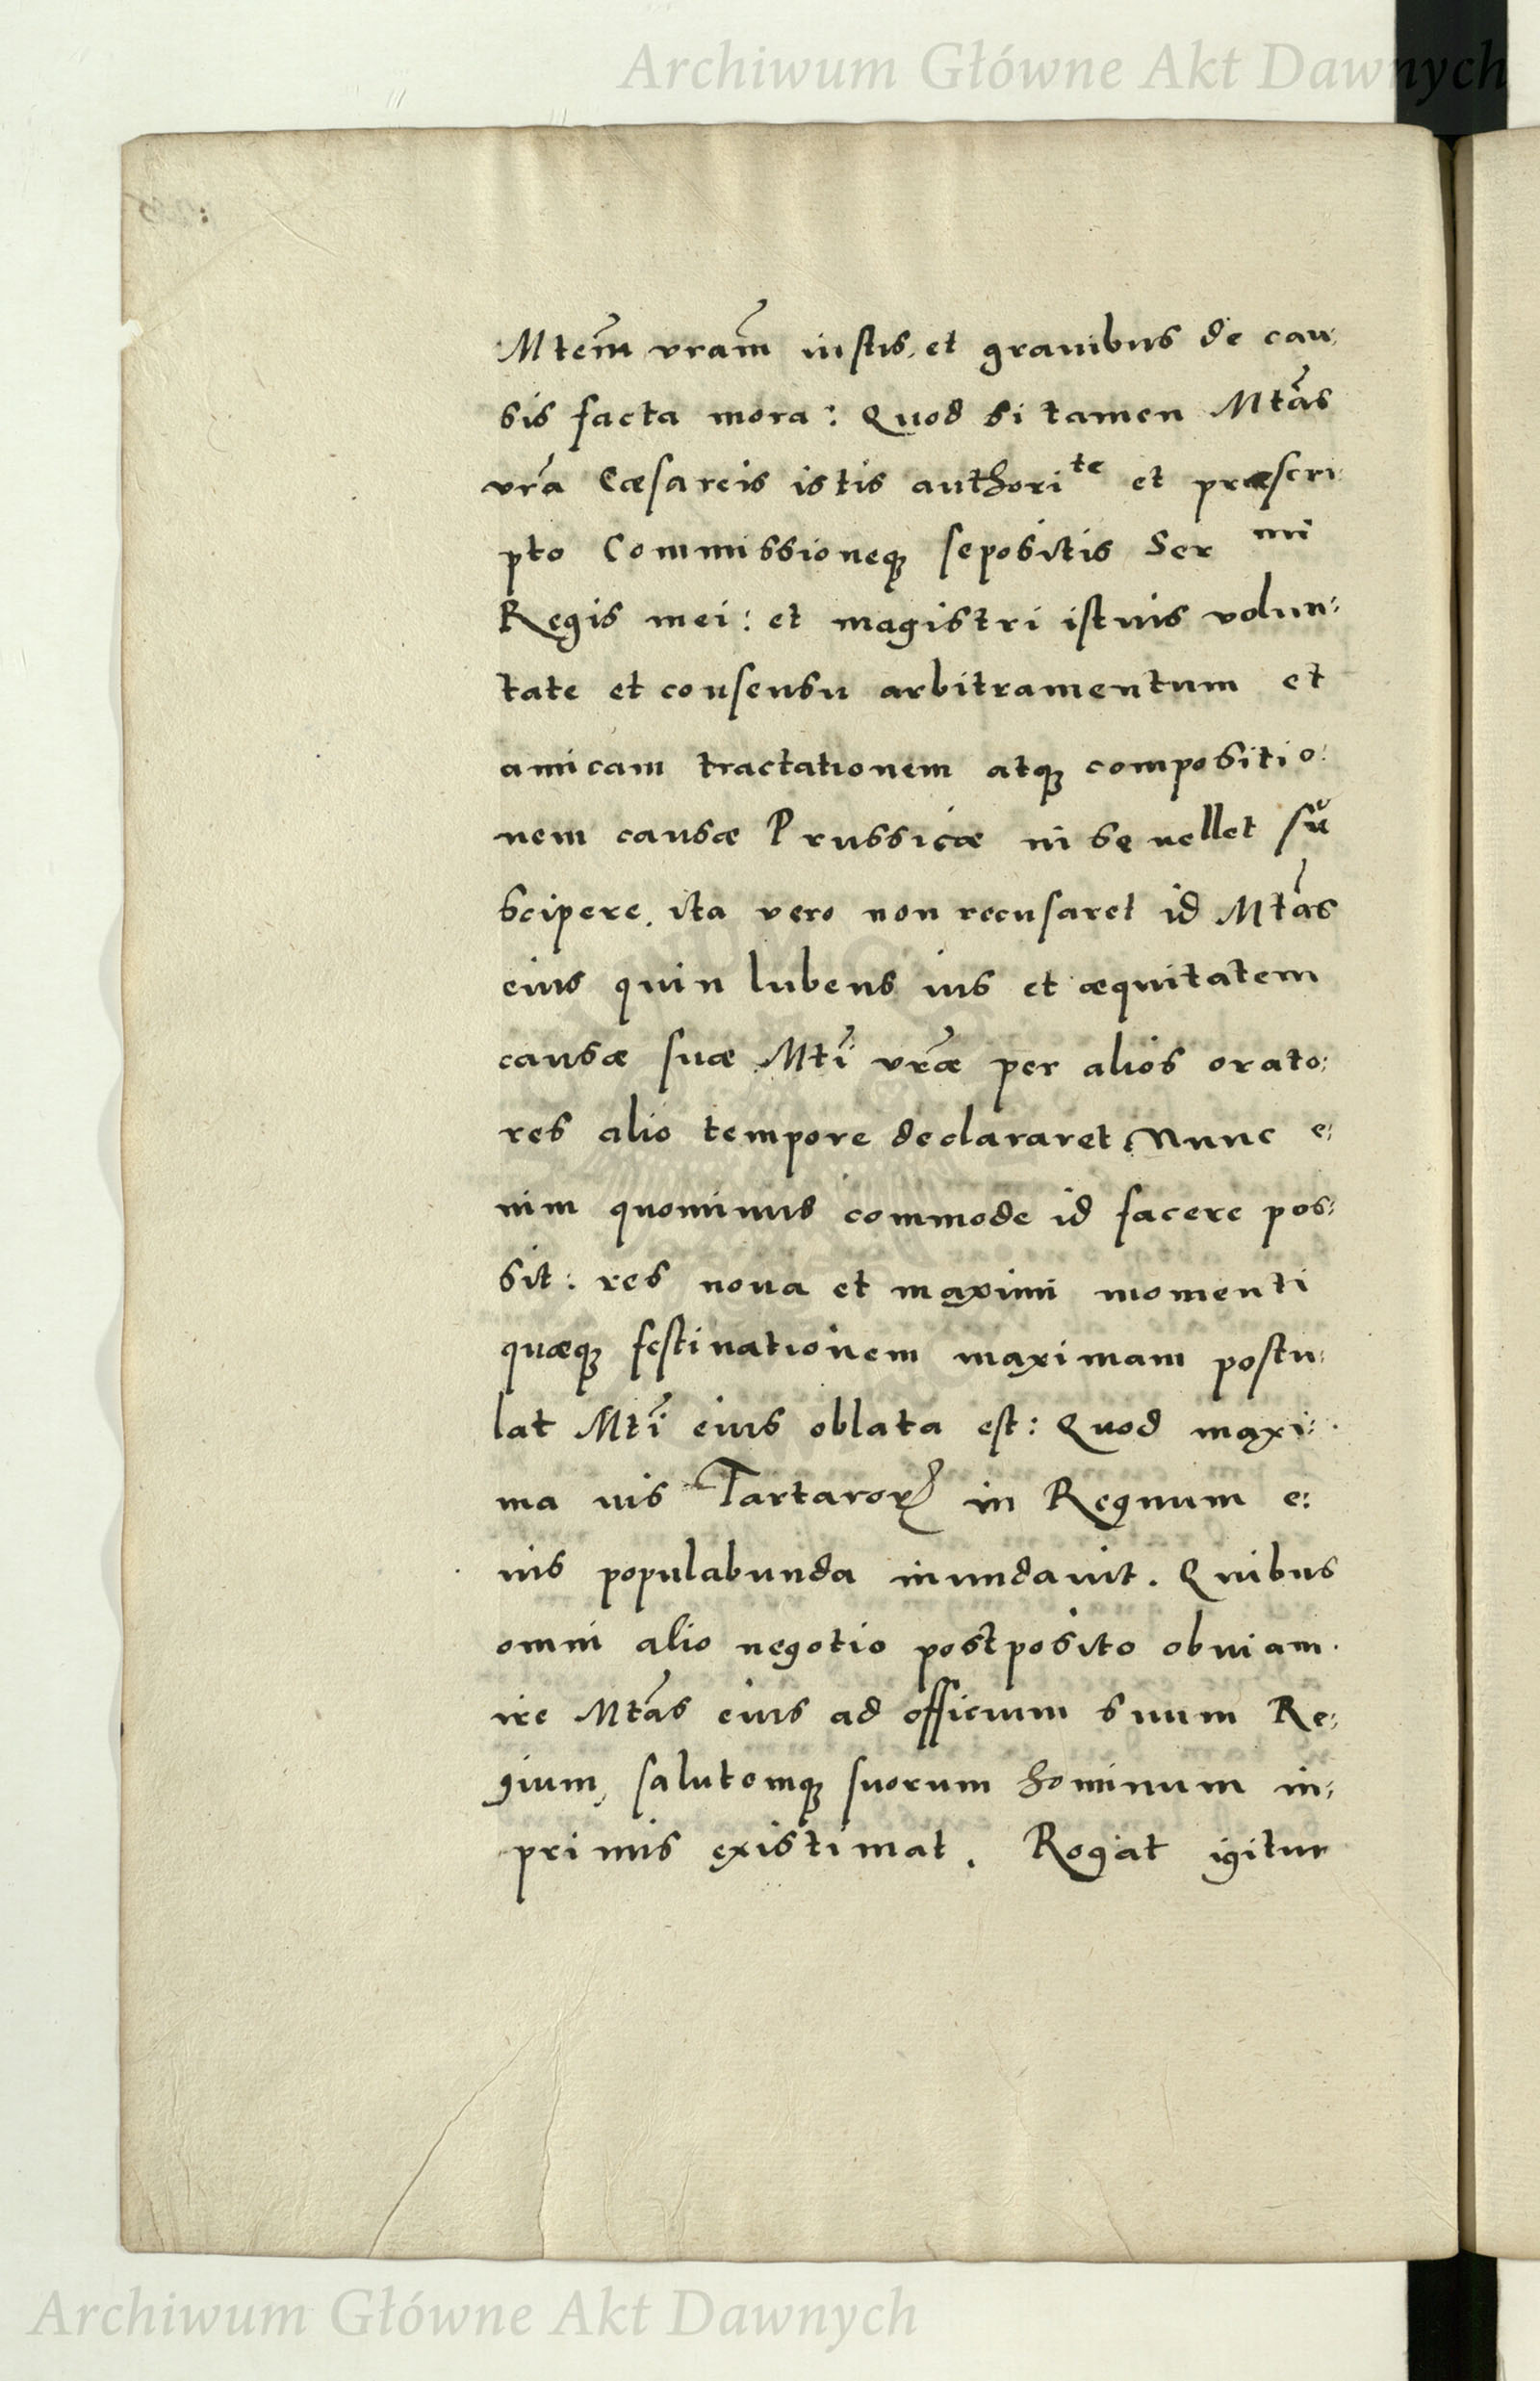 Archiwum Główne Akt Dawnych
Mtem̃ vram̃ iustis, et grauibus de cau:
sis facta mora: Quod si tamen Mtãs
vrã Cæsareis istis authori^te et præscri:
pto Commissioneqꝫ sepositis Ser^mi
Regis mei: et magistri istius volun:
tate et consensu arbitramentum et
amicam tractationem atqꝫ compositio:
nem causæ Prussicæ in se uellet su
scipere. ita vero non recusaret id Mtãs
eius quin lubens ius et æquitatem
causæ suæ Mtĩ vræ̃ per alios orato:
res alio tempore declararet, Nunc e:
nim quominus commode id facere pos:
sit: res noua et maximi momenti
quæqꝫ festinationem maximam postu:
lat Mtĩ eius oblata est: Quod maxi:
ma uis Tartaroꝝ in Regnum e:
ius populabunda inundauit. Quibus
omni alio negotio postposito obuiam
ire Mtãs eius ad officium suum Re:
gium, salutemqꝫ suorum hominum in:
primis existimat. Rogat igitur
Archiwum Główne Akt Dawnych